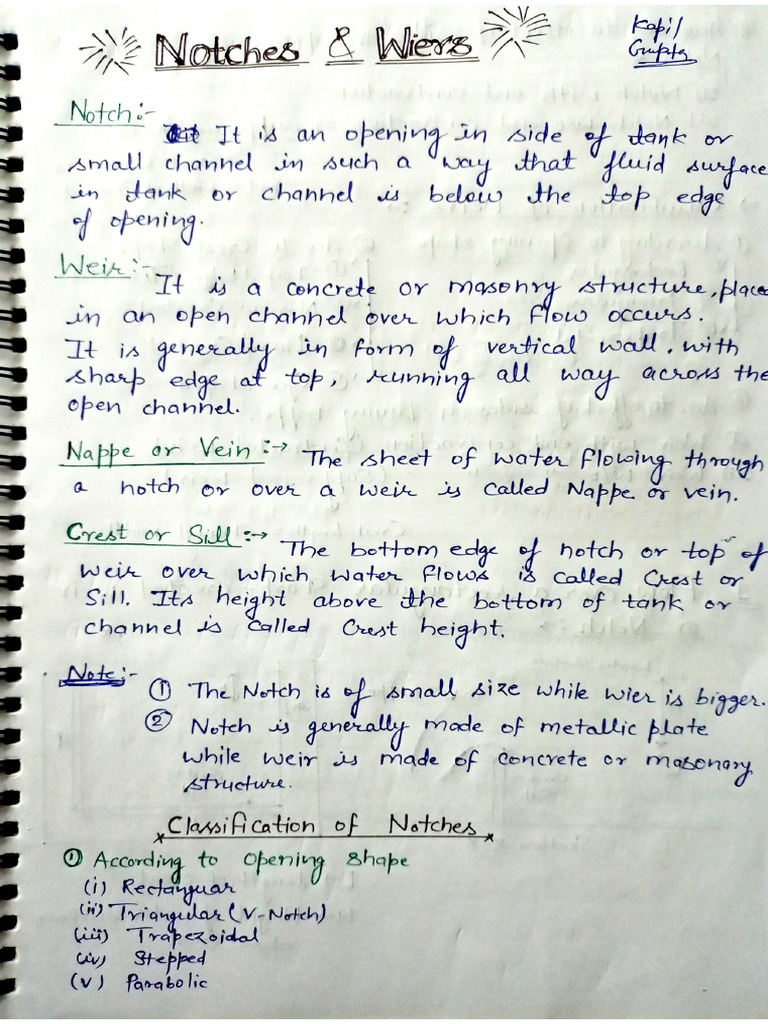 Notches & Wiers
Kapil
Gupta
Notch:-
It is an opening in side of tank or
small channel in such a way that fluid surface
in tank or channel is below the top edge
of opening.
Weir:-
It is a concrete or masonry structure, place
in an open channel over which flow occurs.
It is generally in form of vertical wall, with
sharp edge at top, running all way across the
open channel.
Nappe or Vein:→ The sheet of water flowing through
a notch or over a weir is called Nappe or vein.
Crest or Sill:→ The bottom edge of notch or top of
weir over which water flows is called Crest or
Sill. Its height above the bottom of tank or
channel is called Crest height.
Note:-
① The Notch is of small size while wier is bigger.
② Notch is generally made of metallic plate
while weir is made of concrete or masonary
structure.
Classification of Notches
① According to opening shape
(i) Rectanguar
(ii) Triangular (V-Notch)
(iii) Trapezoidal
(iv) Stepped
(v) Parabolic